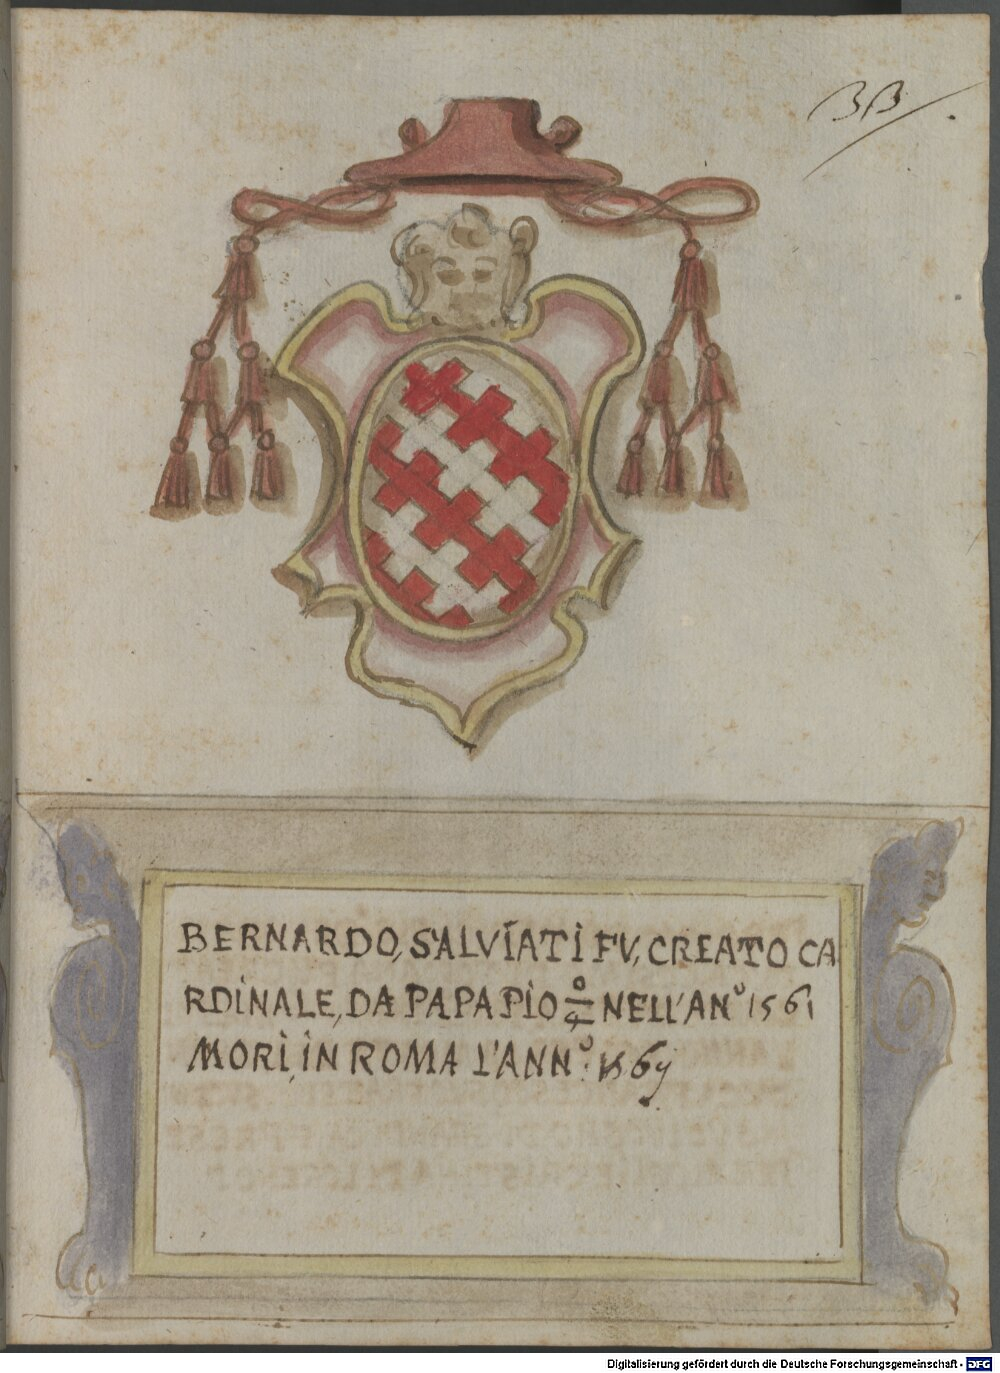 33
BERNARDO, SALVIATI FV, CREATO CA
RDINALE, DA PAPA PIO 4º NELL'ANº 1561
MORI, IN ROMA L'ANNº: 1569
Digitalisierung gefördert durch die Deutsche Forschungsgemeinschaft - DFG